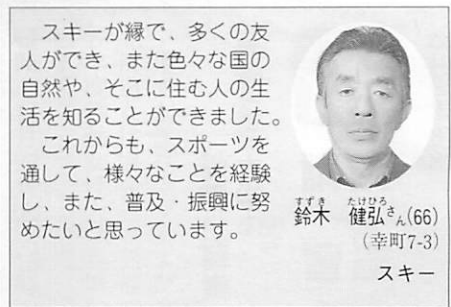 スキーが縁で、多くの友
人ができ、また色々な国の
自然や、そこに住む人の生
活を知ることができました。
これからも、スポーツを
通して、様々なことを経験
し、また、普及・振興に努
めたいと思っています。
すずき たけひろ
鈴木 健弘さん(66)
(幸町7-3)
スキー